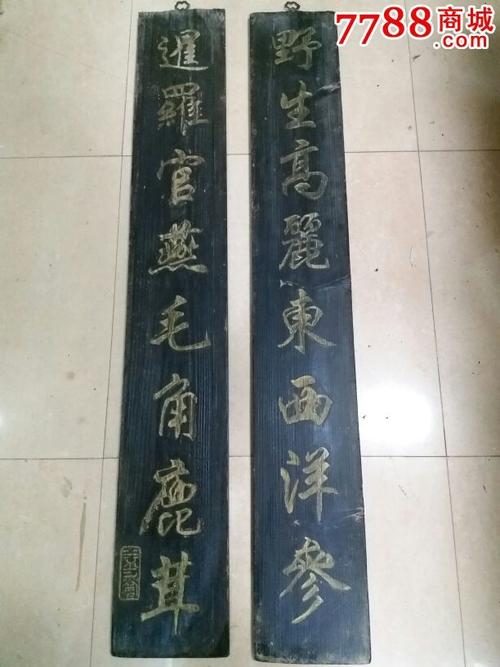 野生高麗東西洋參
暹羅官燕毛角鹿茸
7788商城
.com